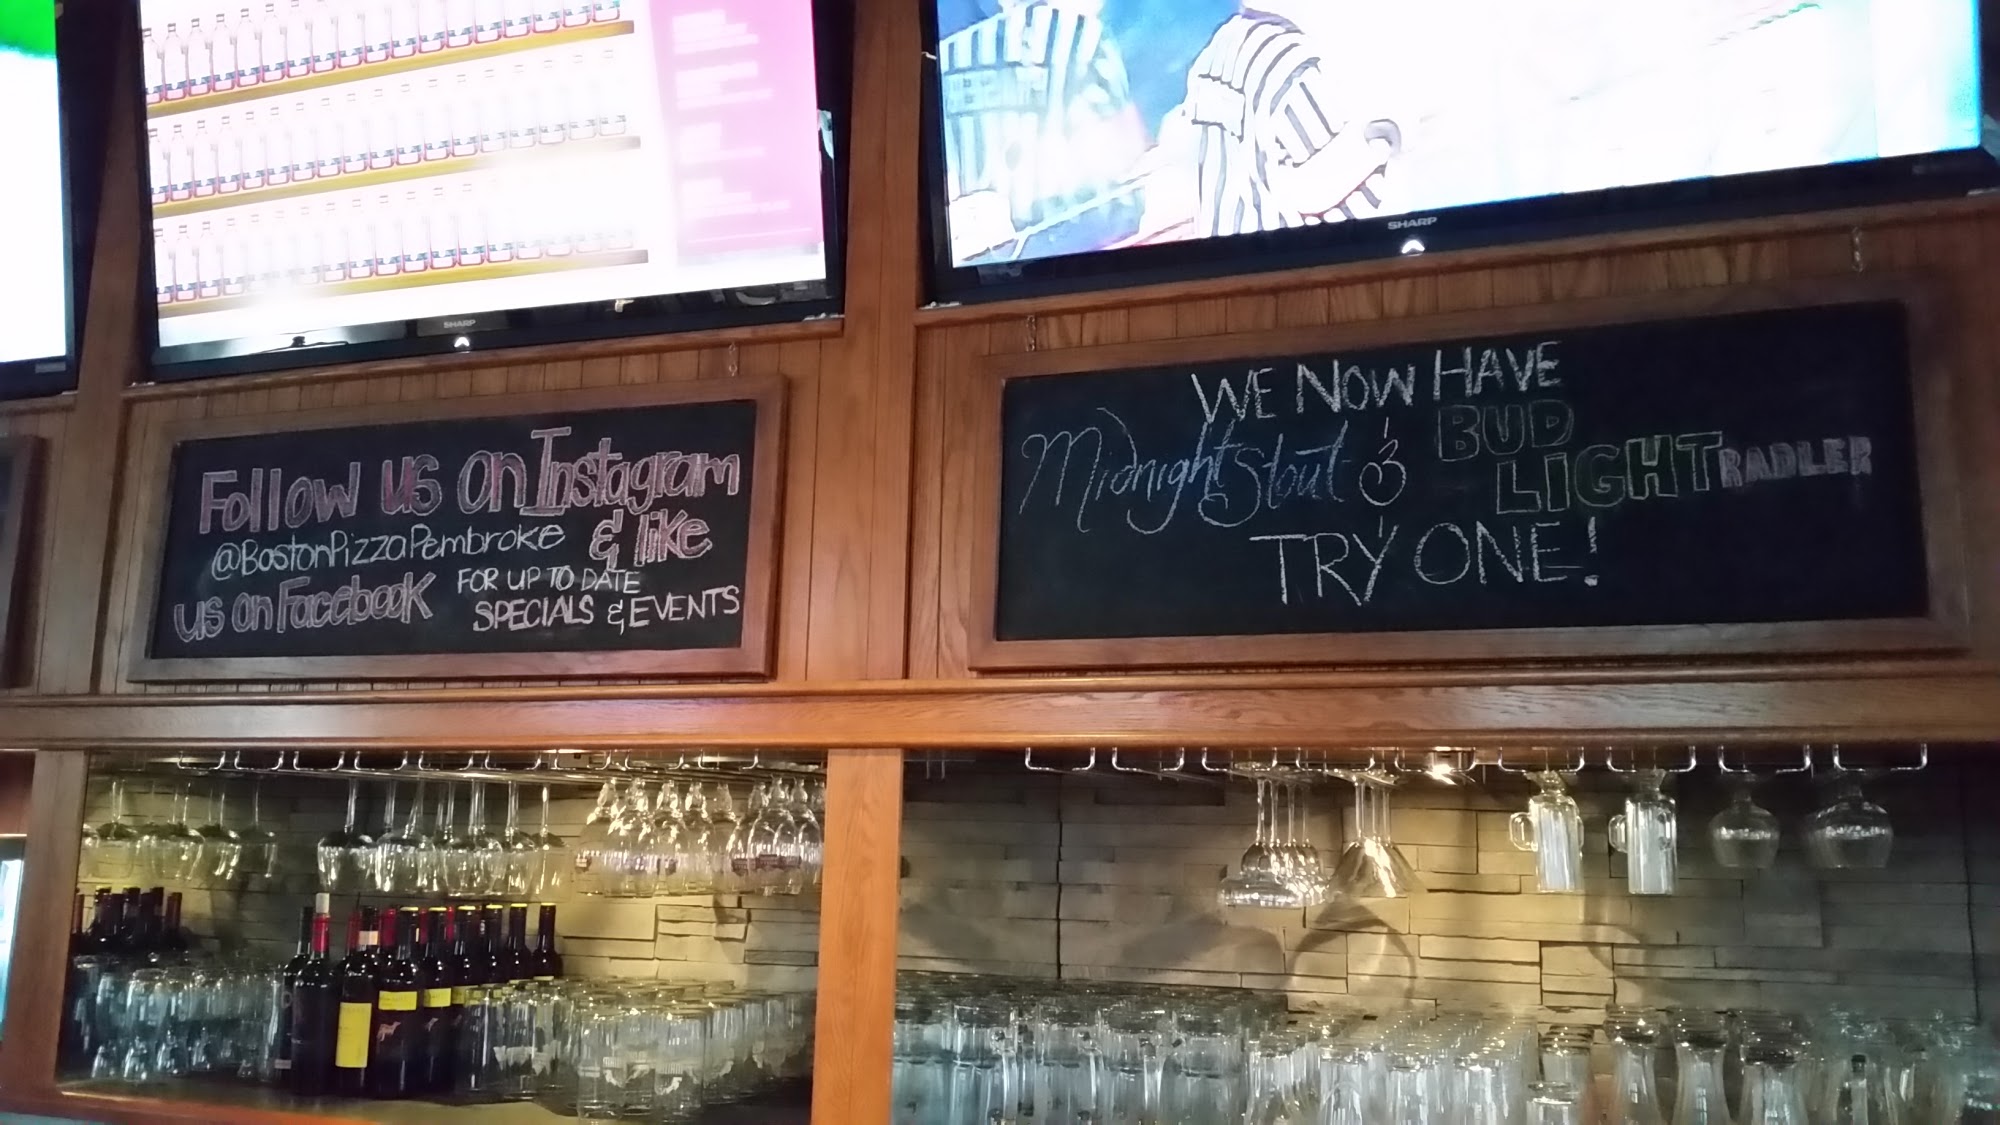 SHARP
SHARP
Follow us on Instagram
@BostonPizzaPembroke & like
us on Facebook FOR UP TO DATE
SPECIALS & EVENTS
WE NOW HAVE
Midnight Stout & BUD
LIGHT RADLER
TRY ONE!